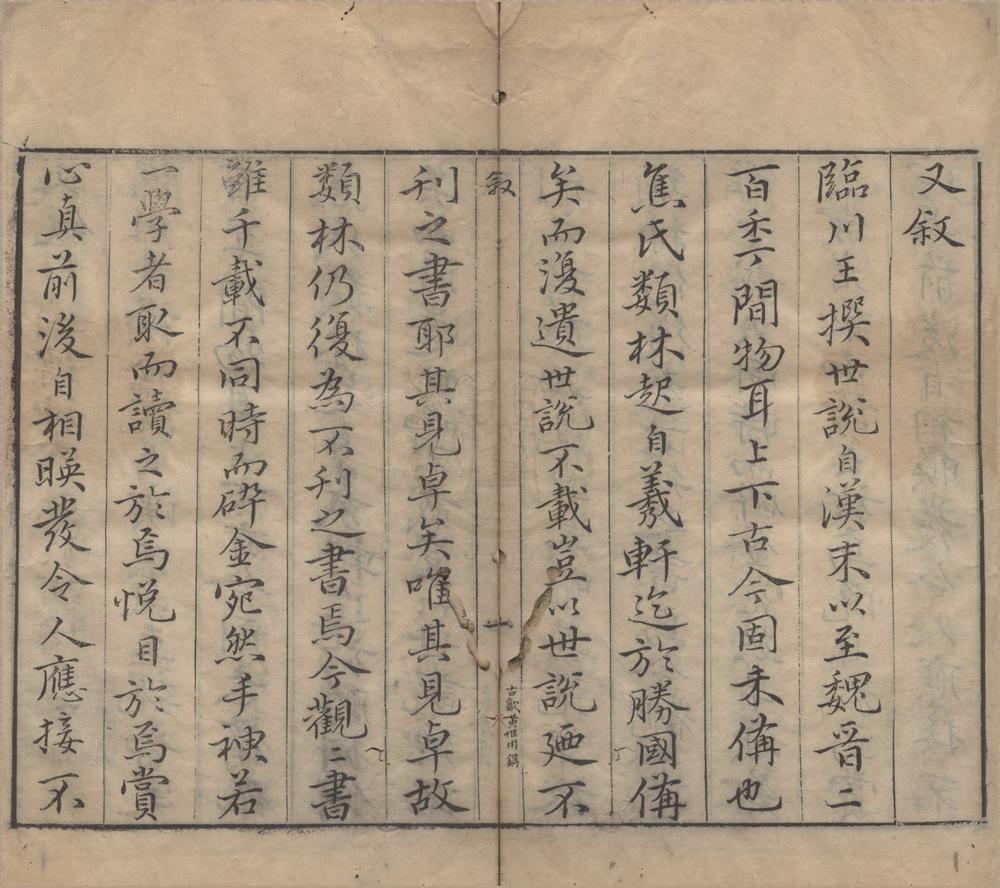 又敘
臨川王撰世說自漢末以至魏晉二
百秊間物耳上下古今固未備也
焦氏類林起自羲軒迄於勝國備
矣而復遺世說不載豈以世說廼不
敘
一
古歙黃惟用鐫
刊之書耶其見卓矣唯其見卓故
類林仍復為不刊之書焉今觀二書
雖千載不同時而碎金宛然手神若
一學者取而讀之於焉悅目於焉賞
心真前後自相暎發令人應接不